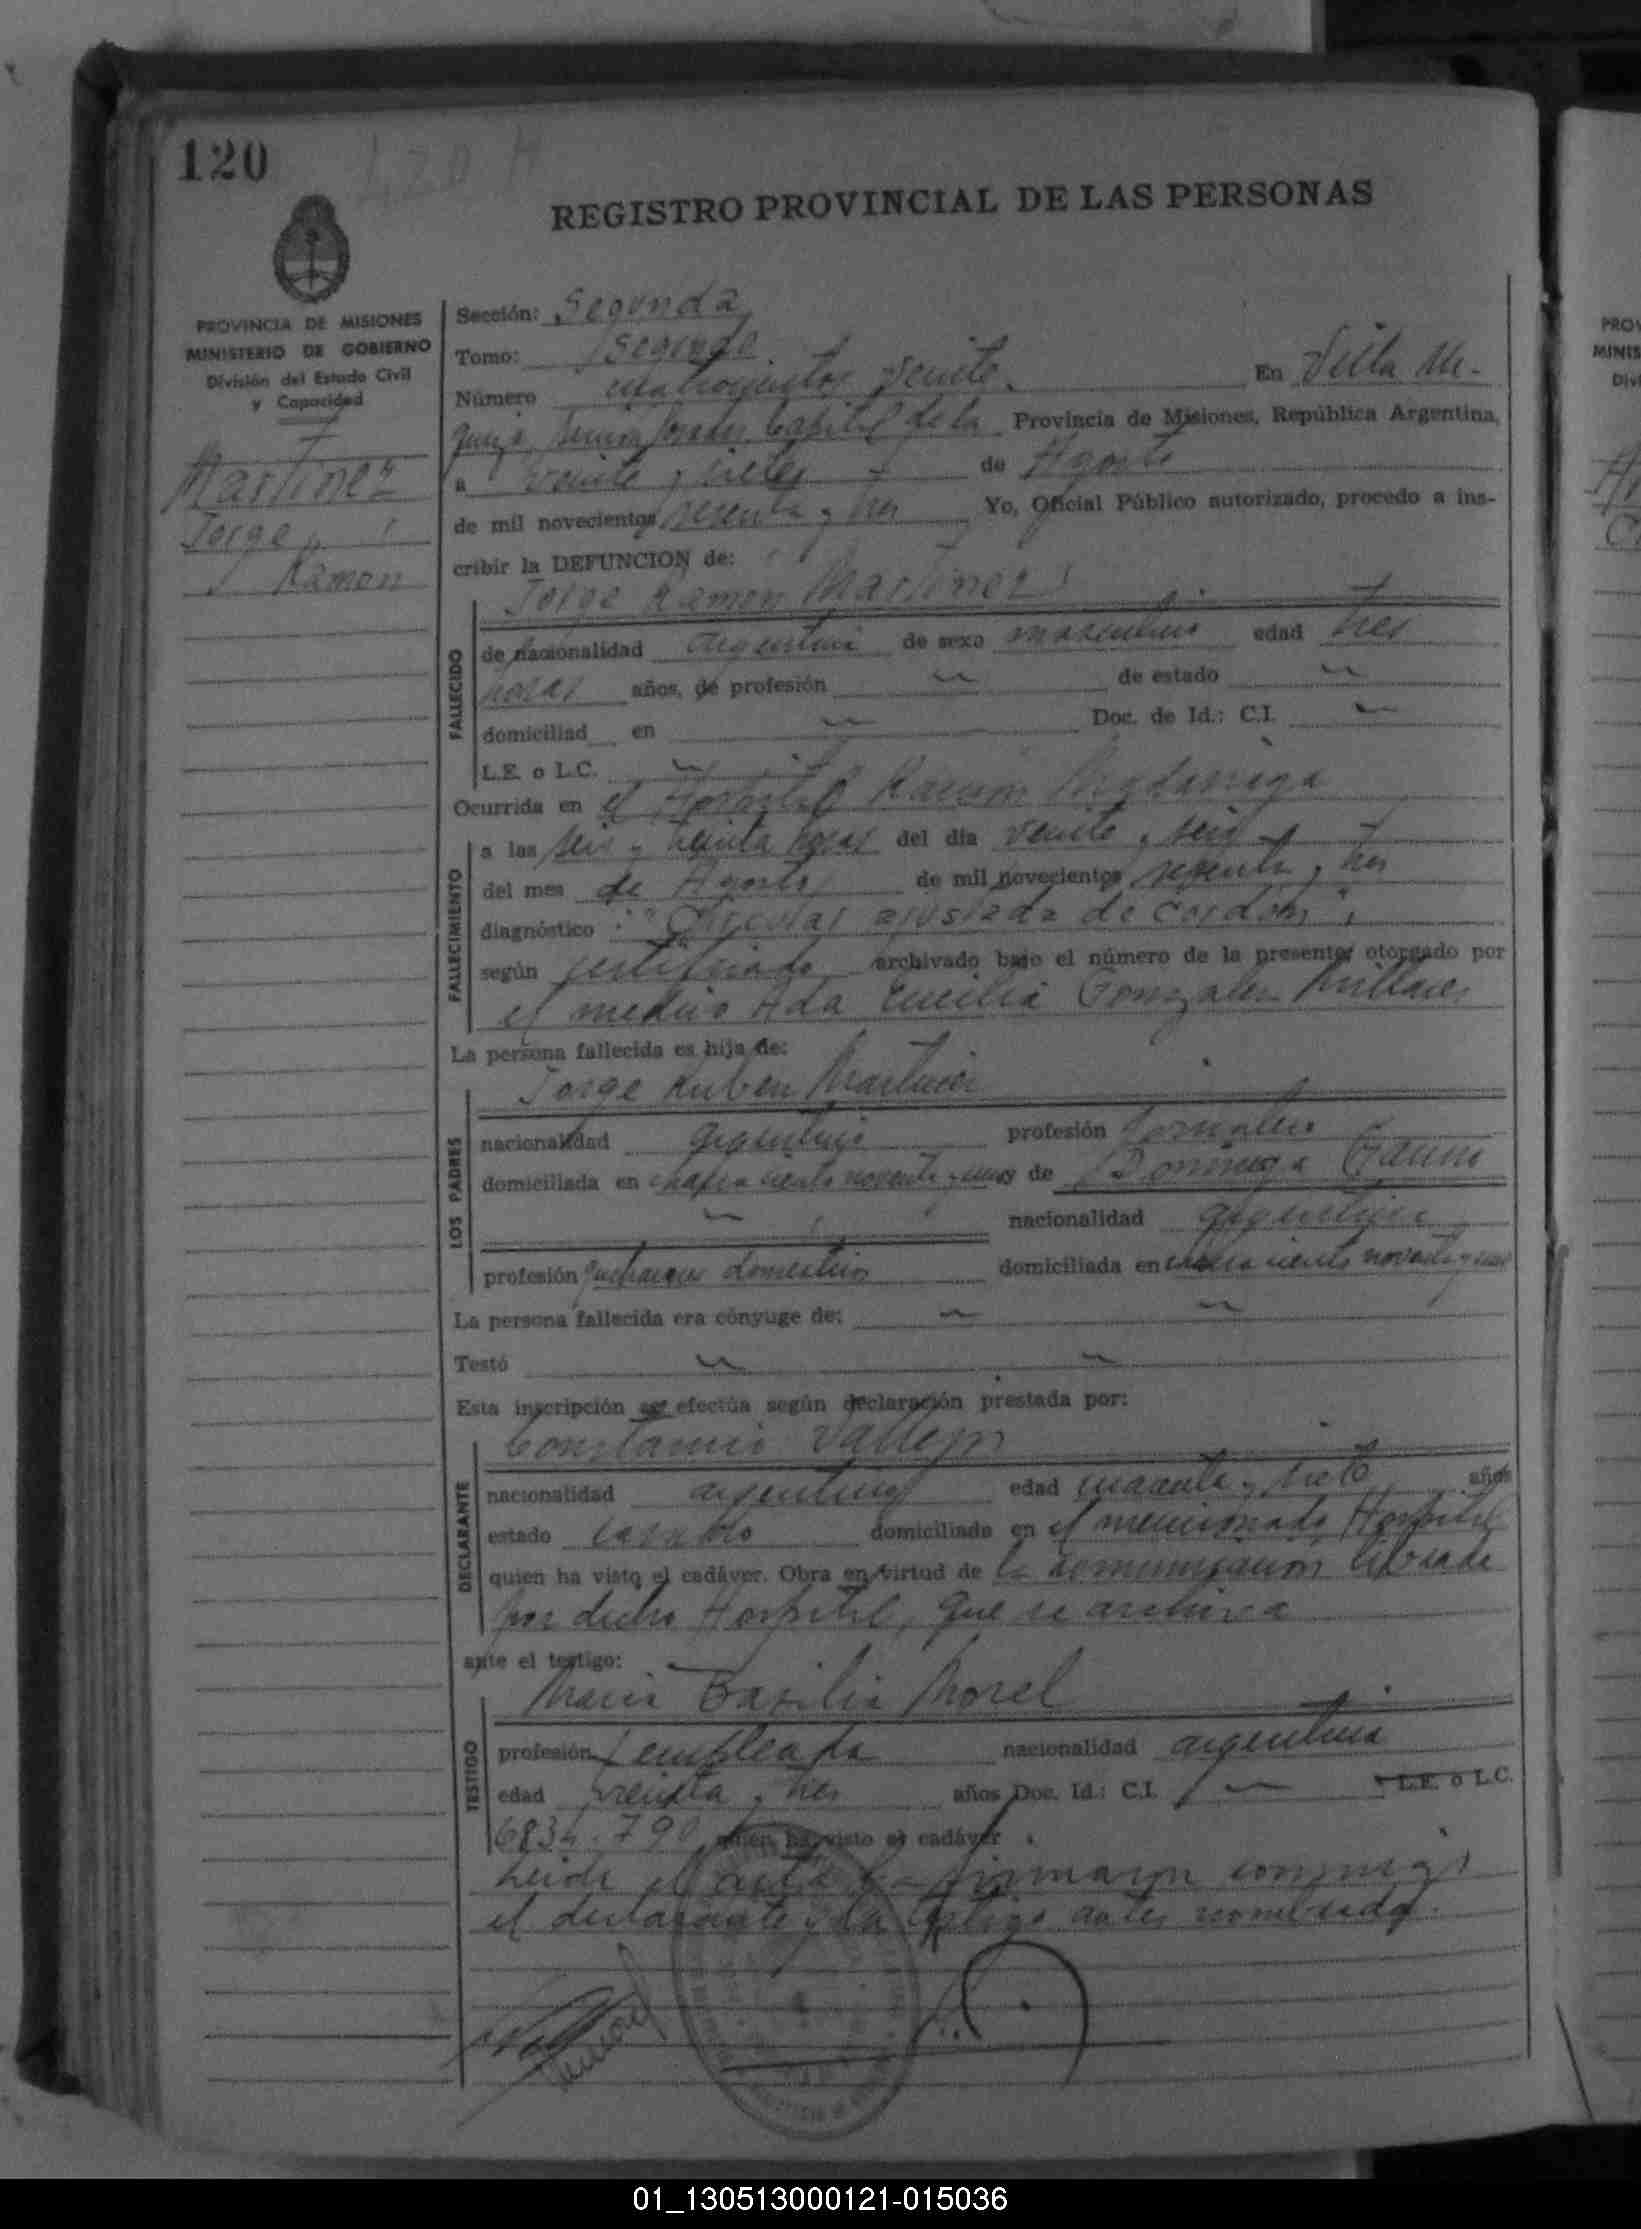 120
420 A
REGISTRO PROVINCIAL DE LAS PERSONAS
PROVINCIA DE MISIONES
MINISTERIO DE GOBIERNO
División del Estado Civil
y Capacidad
Martinez
Jorge
Ramon
Sección: Segunda
Tomo: Segundo
Número cuatrocientos veinte. En Villa Ur-
quiza, Posadas Capital de la Provincia de Misiones, República Argentina,
a veinte y siete de Agosto
de mil novecientos sesenta y tres Yo, Oficial Público autorizado, procedo a ins-
cribir la DEFUNCION de:
Jorge Ramon Martinez
FALLECIDO
de nacionalidad argentina de sexo masculino edad tres
horas años, de profesión de estado
domiciliad en Doc. de Id.: C.I.
L.E. o L.C.
Ocurrida en el Hospital Ramón Madariaga
FALLECIMIENTO
a las seis y treinta horas del día veinte y seis
del mes de Agosto de mil novecientos sesenta y tres
diagnóstico : "Circular ajustada de cordón",
según certificado archivado bajo el número de la presente, otorgado por
el medico Ada Gonzalez
La persona fallecida es hija de:
Jorge Ruben Martinez
LOS PADRES
nacionalidad argentino profesión Jornalero
domiciliada en chacra ciento noventa y uno y de Dominga
nacionalidad argentina
profesión quehaceres domesticos domiciliada en chacra ciento noventa y uno
La persona fallecida era cónyuge de:
Testó
Esta inscripción se efectúa según declaración prestada por:
Constancio Vallejos
DECLARANTE
nacionalidad argentino edad cuarenta y siete años
estado casado domiciliado en el mencionado Hospital
quien ha visto el cadáver. Obra en virtud de la comunicación librada
por dicho Hospital, que se archiva
ante el testigo:
Maria Basilia Morel
TESTIGO
profesión empleada nacionalidad argentina
edad treinta y tres años Doc. Id.: C.I. L.E. o L.C.
6834.790 quien ha visto el cadáver.
Leida el acta la firmaron conmigo
el declarante y la testigo antes nombrada.
01_130513000121-015036